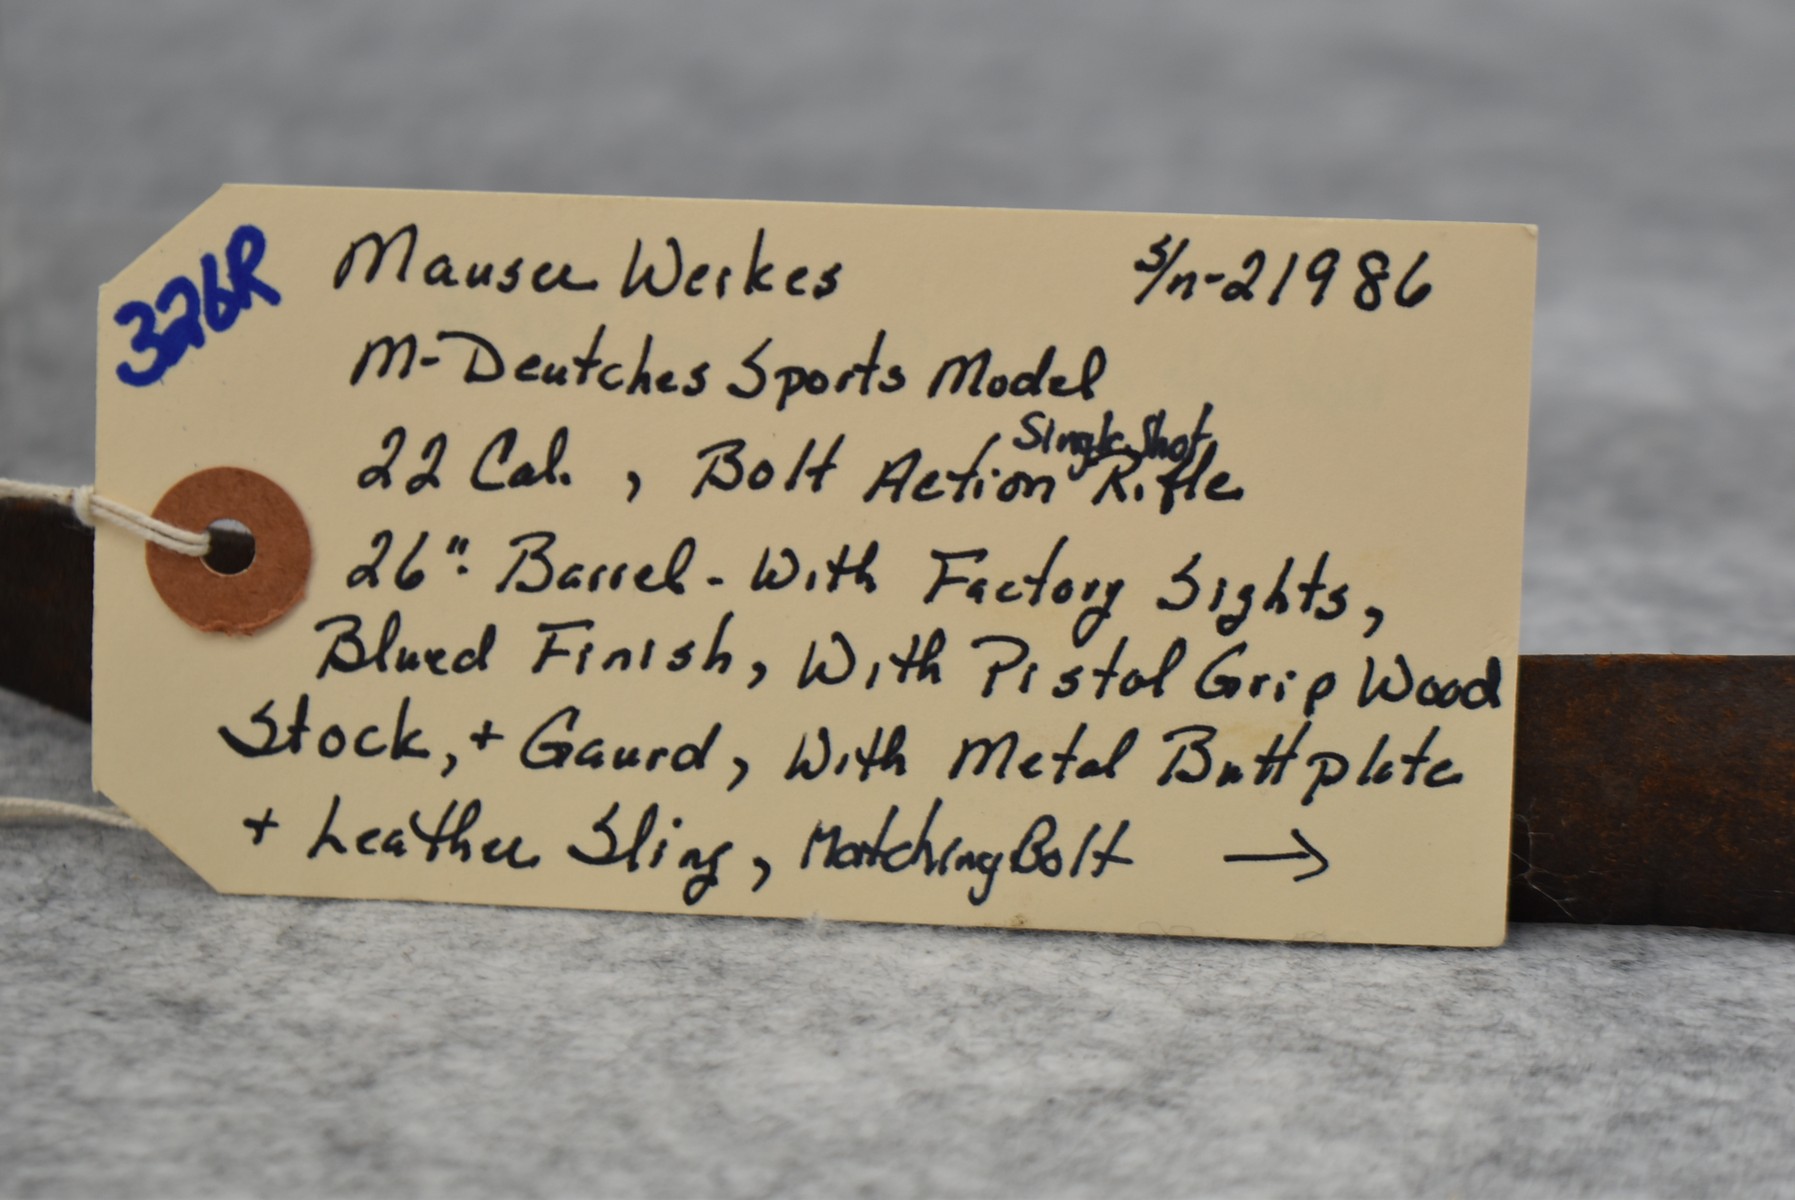 326R
Mauser Werkes s/n-21986
M-Deutches Sports Model
22 Cal. , Bolt Action Single Shot Rifle
26" Barrel - With Factory Sights,
Blued Finish, With Pistol Grip Wood
Stock, + Gaurd, With Metal Buttplate
+ Leather Sling, Matching Bolt →